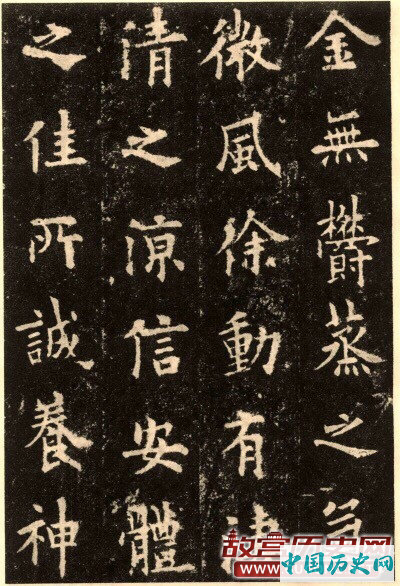 金無鬱蒸之
微風徐動有
清之涼信安體
之佳所誠養神
故宫历史网
中国历史网